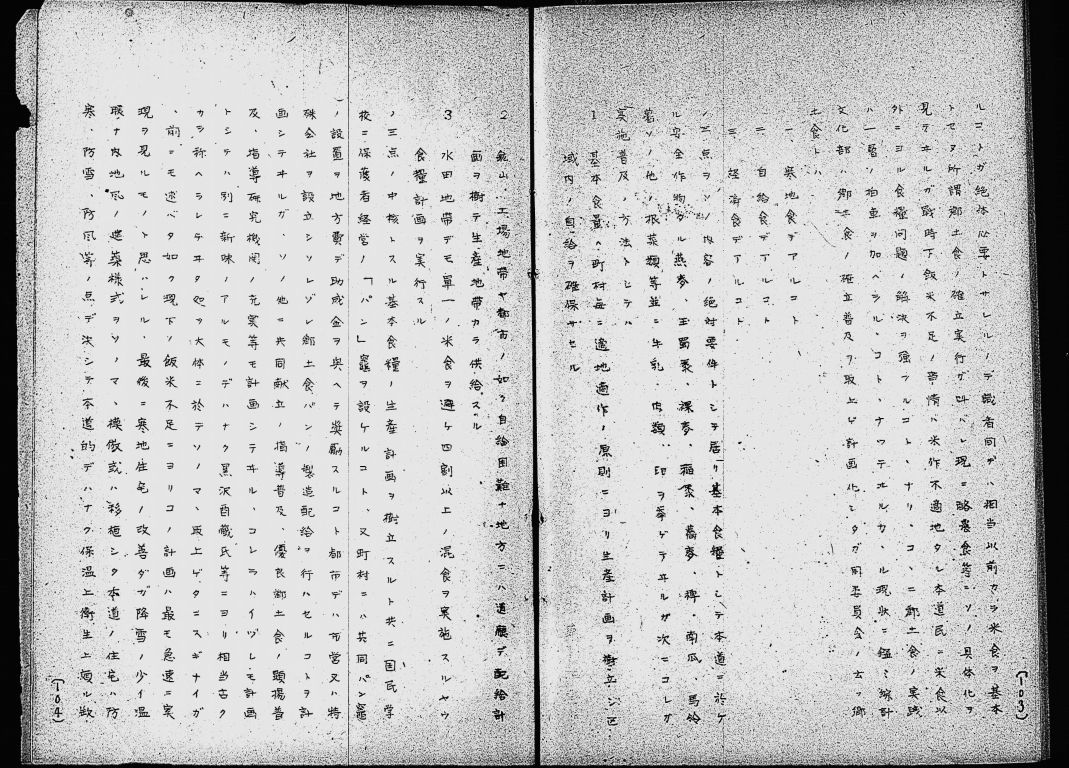 ルコトガ絶体必要トサレルノデ識者間デハ相当以前カラ米食ヲ基本
トセヌ所謂郷土食ノ確立実行ガ叫バレ現ニ酪農食等ニソノ具体化ヲ
見テヰルガ戦時下飯米不足ノ事情ハ米作不適地タル本道民ニ米食以
外ニヨル食糧問題ノ解決ヲ強フルコトヽナリ、コヽニ郷土食ノ実践
ハ一層ノ拍車ヲ加ヘラルヽコトヽナツテヰルカヽル現状ニ鑑ミ綜計
文化部ハ郷土食ノ確立普及ヲ取上ゲ計画化シタガ同委員会ノ云フ郷
土食トハ
一、寒地食デアルコト
二、自給食デアルコト
三、経済食デアルコト
ノ三点ヲソノ内容ノ絶対要件トシテ居リ基本食糧トシテ本道ニ於ケ
ル安全作物タル燕麦、玉蜀黍、裸麦、稲黍、蕎麦、稗、南瓜、馬鈴
薯ソノ他ノ根菜類等並ニ牛乳、肉類、卵ヲ挙ゲテヰルガ次ニコレガ
実施普及ノ方法トシテハ
1 基本食量ハ町村毎ニ適地適作ノ原則ニヨリ生産計画ヲ樹立シ区
域内ノ自給ヲ確保サセル
2 鉱山、工場地帯ヤ都市ノ如ク自給困難ナ地方ニハ道庁デ配給計
画ヲ樹テ生産地帯カラ供給スル
3 水田地帯デモ単一ノ米食ヲ避ケ四割以上ノ混食ヲ実施スルヤウ
食糧計画ヲ実行スル
ノ三点ノ中核トスル基本食糧ノ生産計画ヲ樹立スルト共ニ国民学
校ニ保護者経営ノ「パン」竈ヲ設ケルコト、又町村ニハ共同パン竈
ノ設置ヲ地方費デ助成金ヲ与ヘテ奨励スルコト都市デハ市営又ハ特
殊会社ヲ設立シソレゾレ郷土食パンノ製造配給ヲ行ハセルコトヲ計
画シテヰルガ、ソノ他ニ共同献立ノ指導普及、優良郷土食ノ顕揚普
及、指導研究機関ノ充実等モ計画シテヰル、コレラハイヅレモ計画
トシテハ別ニ新味ノアルモノデハナク黒沢酉蔵氏等ニヨリ相当古ク
カラ称ヘラレテヰタ処ヲ大体ニ於テソノマヽ取上ゲタニスギナイガ
、前ニモ述ベタ如ク現下ノ飯米不足ニヨリコノ計画ハ最モ急速ニ実
現ヲ見ルモノト思ハレル、最後ニ寒地住宅ノ改善ダガ降雪ノ少イ温
暖ナ内地風ノ建築様式ヲソノマヽ模倣或ハ移植シタ本道ノ住宅ハ防
寒、防雪、防風等ノ点デ決シテ本道的デハナク保温上衛生上頗ル故
(103)
(104)